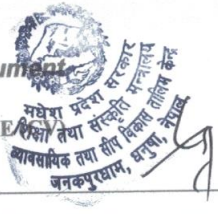 ument
मधेश प्रदेश सरकार
शिक्षा तथा संस्कृति मन्त्रालय
व्यावसायिक तथा सीप विकास तालिम केन्द्र
जनकपुरधाम, धनुषा, नेपाल